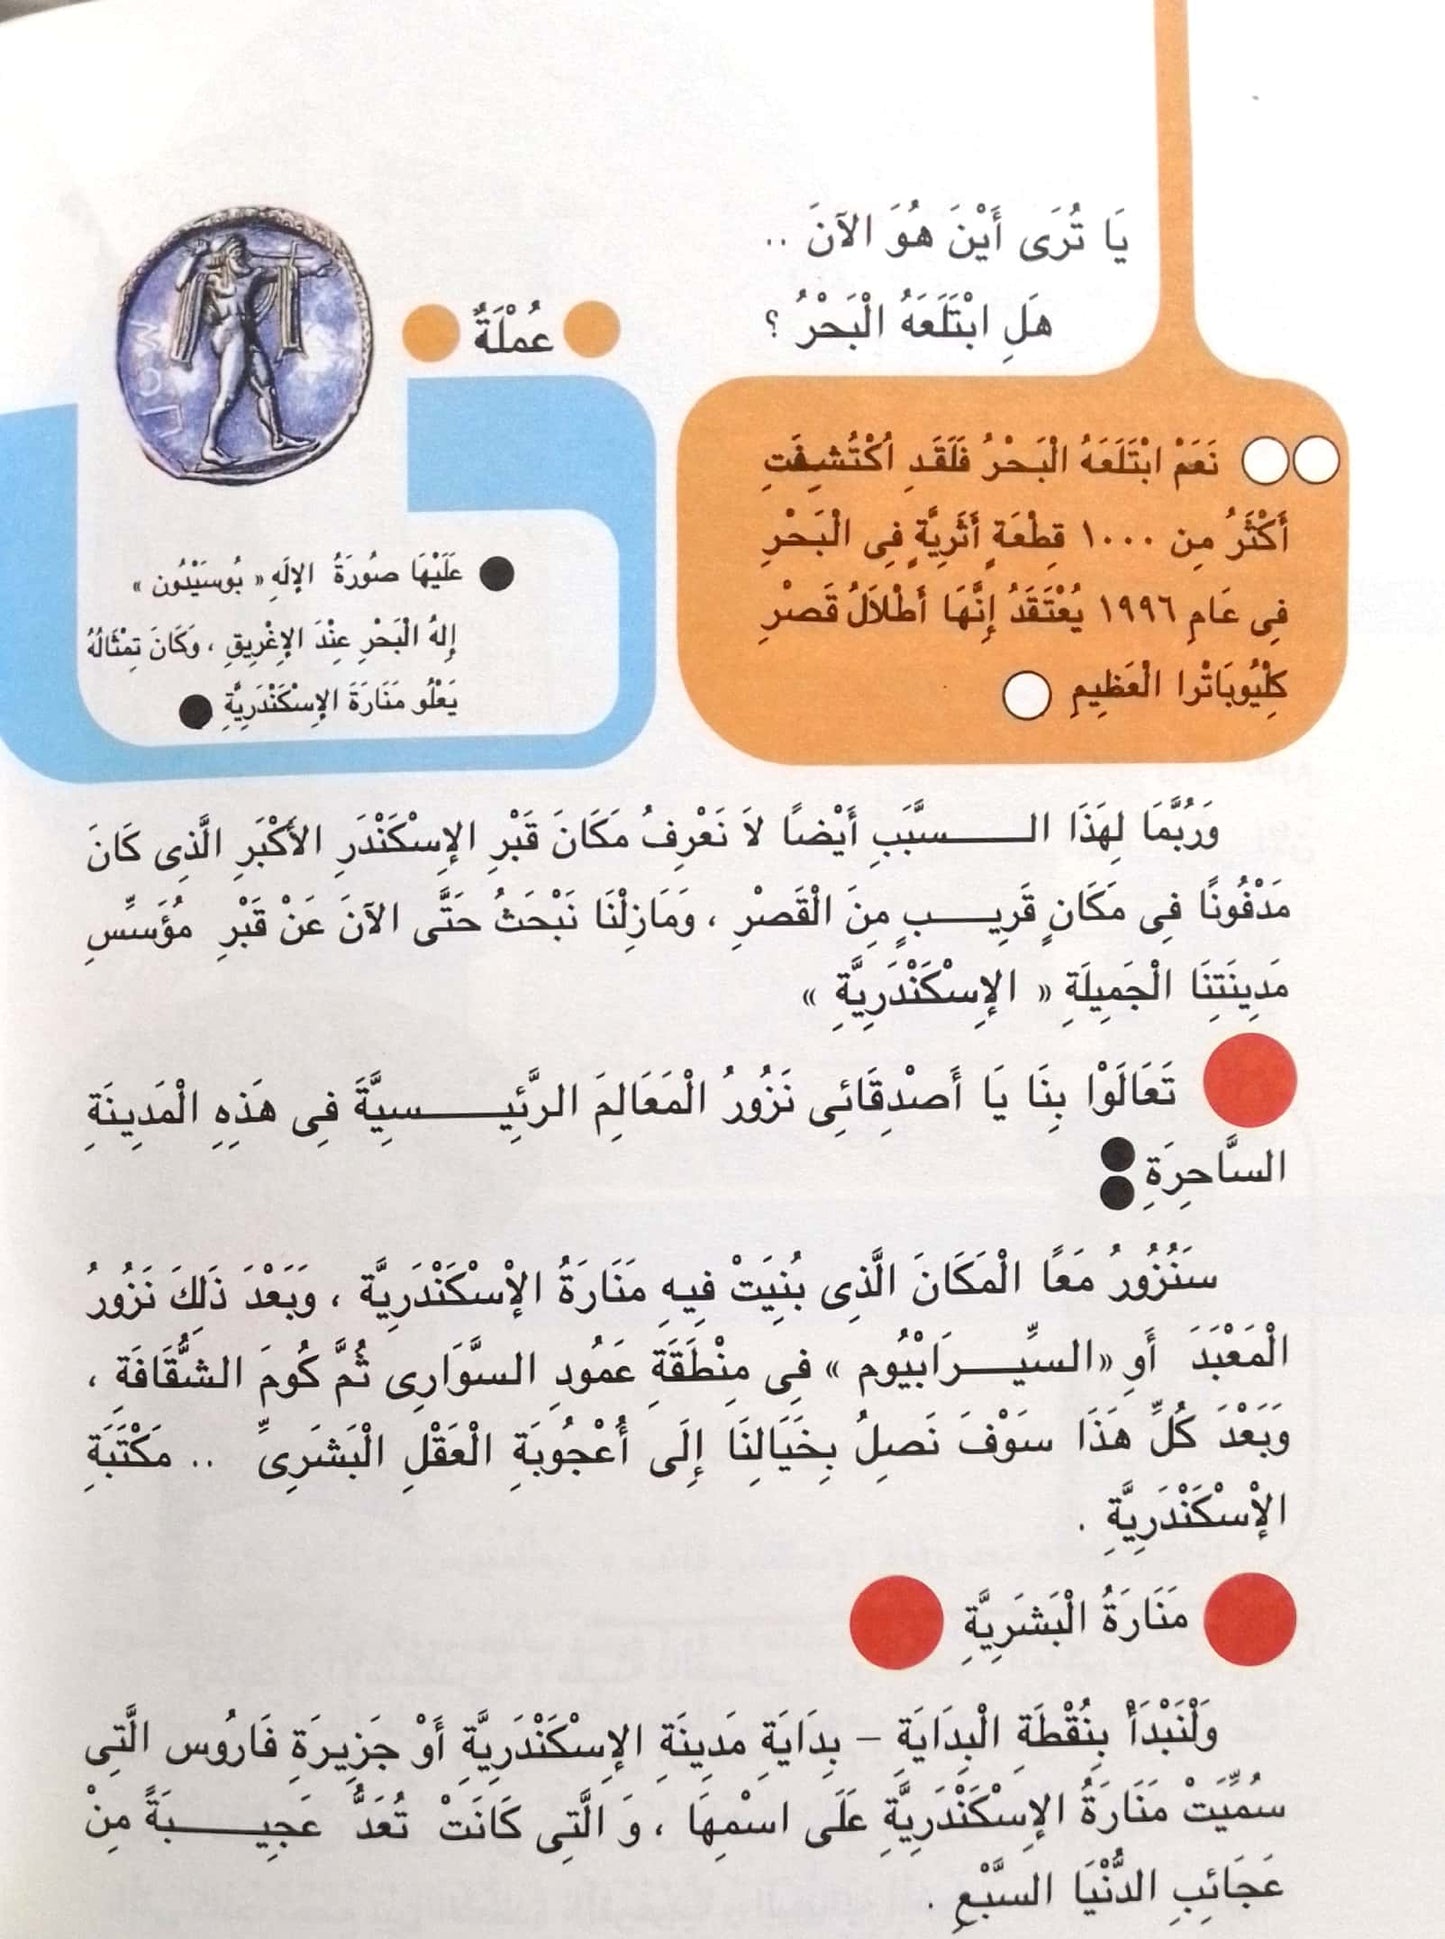 يَا تُرَى أَيْنَ هُوَ الآنَ ..
هَلِ ابْتَلَعَهُ الْبَحْرُ ؟
نَعَمْ ابْتَلَعَهُ الْبَحْرُ فَلَقَدِ اُكْتُشِفَتِ
أَكْثَرُ مِن ١٠٠٠ قِطْعَةٍ أَثَرِيَّةٍ فِى الْبَحْرِ
فِى عَامِ ١٩٩٦ يُعْتَقَدُ إِنَّهَا أَطْلاَلُ قَصْرِ
كِلْيُوبَاتْرا الْعَظِيمِ
عُمْلَةٌ
عَلَيْهَا صُورَةُ الإلَهِ « بُوسَيْدُون »
إِلهُ الْبَحْرِ عِنْدَ الإغْرِيقِ ، وَكَانَ تِمْثَالُهُ
يَعْلُو مَنَارَةَ الإِسْكَنْدَرِيَّةِ
ΠΟΣΜ
وَرُبَّمَا لِهَذَا الـــسَّبَبِ أَيْضاً لاَ نَعْرِفُ مَكَانَ قَبْرِ الإِسْكَنْدَرِ الأَكْبَرِ الَّذِى كَانَ
مَدْفُونًا فِى مَكَانٍ قَرِيــبٍ مِنَ الْقَصْرِ ، وَمَازِلْنَا نَبْحَثُ حَتَّى الآنَ عَنْ قَبْرِ مُؤَسِّسِ
مَدِينَتِنَا الْجَمِيلَةِ « الإِسْكَنْدَرِيَّةِ »
تَعَالَوْا بِنَا يَا أَصْدِقَائِى نَزُورُ الْمَعَالِمَ الرَّئِيــسِيَّةَ فِى هَذِهِ الْمَدِينَةِ
السَّاحِرَةِ :
سَنُزُورُ مَعًا الْمَكَانَ الَّذِى بُنِيَتْ فِيهِ مَنَارَةُ الإْسْكَنْدَرِيَّة ، وَبَعْدَ ذَلِكَ نَزُورُ
الْمَعْبَدَ أَوِ «السِّيــرَابْيُوم » فِى مِنْطَقَةِ عَمُودِ السَّوَارِى ثُمَّ كُومَ الشُّقَافَةِ ،
وَبَعْدَ كُلِّ هَذَا سَوْفَ نَصِلُ بِخَيَالِنَا إِلَى أُعْجُوبَةِ الْعَقْلِ الْبَشَرِىِّ .. مَكْتَبَةِ
الإْسْكَنْدَرِيَّةِ .
مَنَارَةُ الْبَشَرِيَّةِ
وَلْنَبْدَأْ بِنُقْطَةِ الْبِدَايَةِ – بِدَايَةِ مَدِينَةِ الإِسْكَنْدَرِيَّةِ أَوْ جَزِيرَةِ فَارُوس الَّتِى
سُمِّيَتْ مَنَارَةُ الإِسْكَنْدَرِيَّةِ عَلَى اسْمِهَا ، وَ الَّتِى كَانَتْ تُعَدُّ عَجِيــبَةً مِنْ
عَجَائِبِ الدُّنْيَا السَّبْعِ .